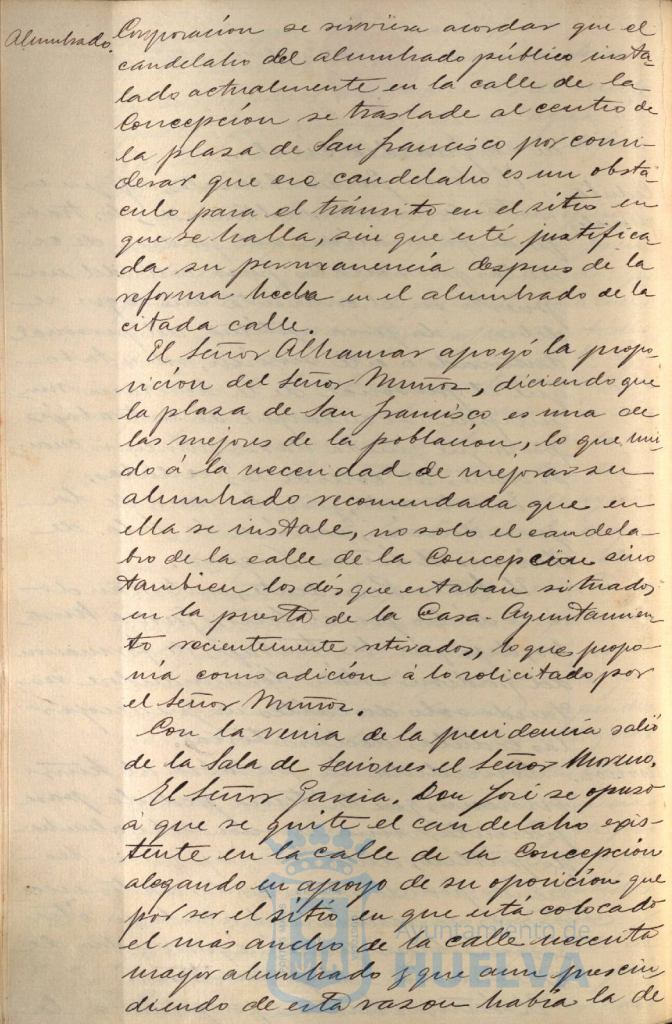 Alumbrado.
Corporación se sirviera acordar que el
candelabro del alumbrado público insta-
lado actualmente en la calle de la
Concepción se traslade al centro de
la plaza de San Francisco por consi-
derar que ese candelabro es un obstá-
culo para el tránsito en el sitio en
que se halla, sin que esté justifica
da su permanencia despues de la
reforma hecha en el alumbrado de la
citada calle.
El Señor Alhamar apoyó la propo-
sición del Señor Muñoz, diciendo que
la plaza de San Francisco es una de
las mejores de la población, lo que uni-
do á la necesidad de mejorar su
alumbrado recomendada que en
ella se instale, no solo el candela-
bro de la calle de la Concepción sino
tambien los dós que estaban situados
en la puerta de la Casa-Ayuntamien-
to recientemente retirados, lo que propo-
nía como adición á lo solicitado por
el Señor Muñoz.
Con la venia de la presidencia salió
de la Sala de Sesiones el Señor Moreno.
El Señor Garcia, Don José se opuso
á que se quite el candelabro exis-
tente en la calle de la Concepción
alegando en apoyo de su oposición que
por ser el sitio en que está colocado
el más ancho de la calle necesita
mayor alumbrado y que aun prescin
diendo de esta razon habia la de
Ayuntamiento de
HUELVA